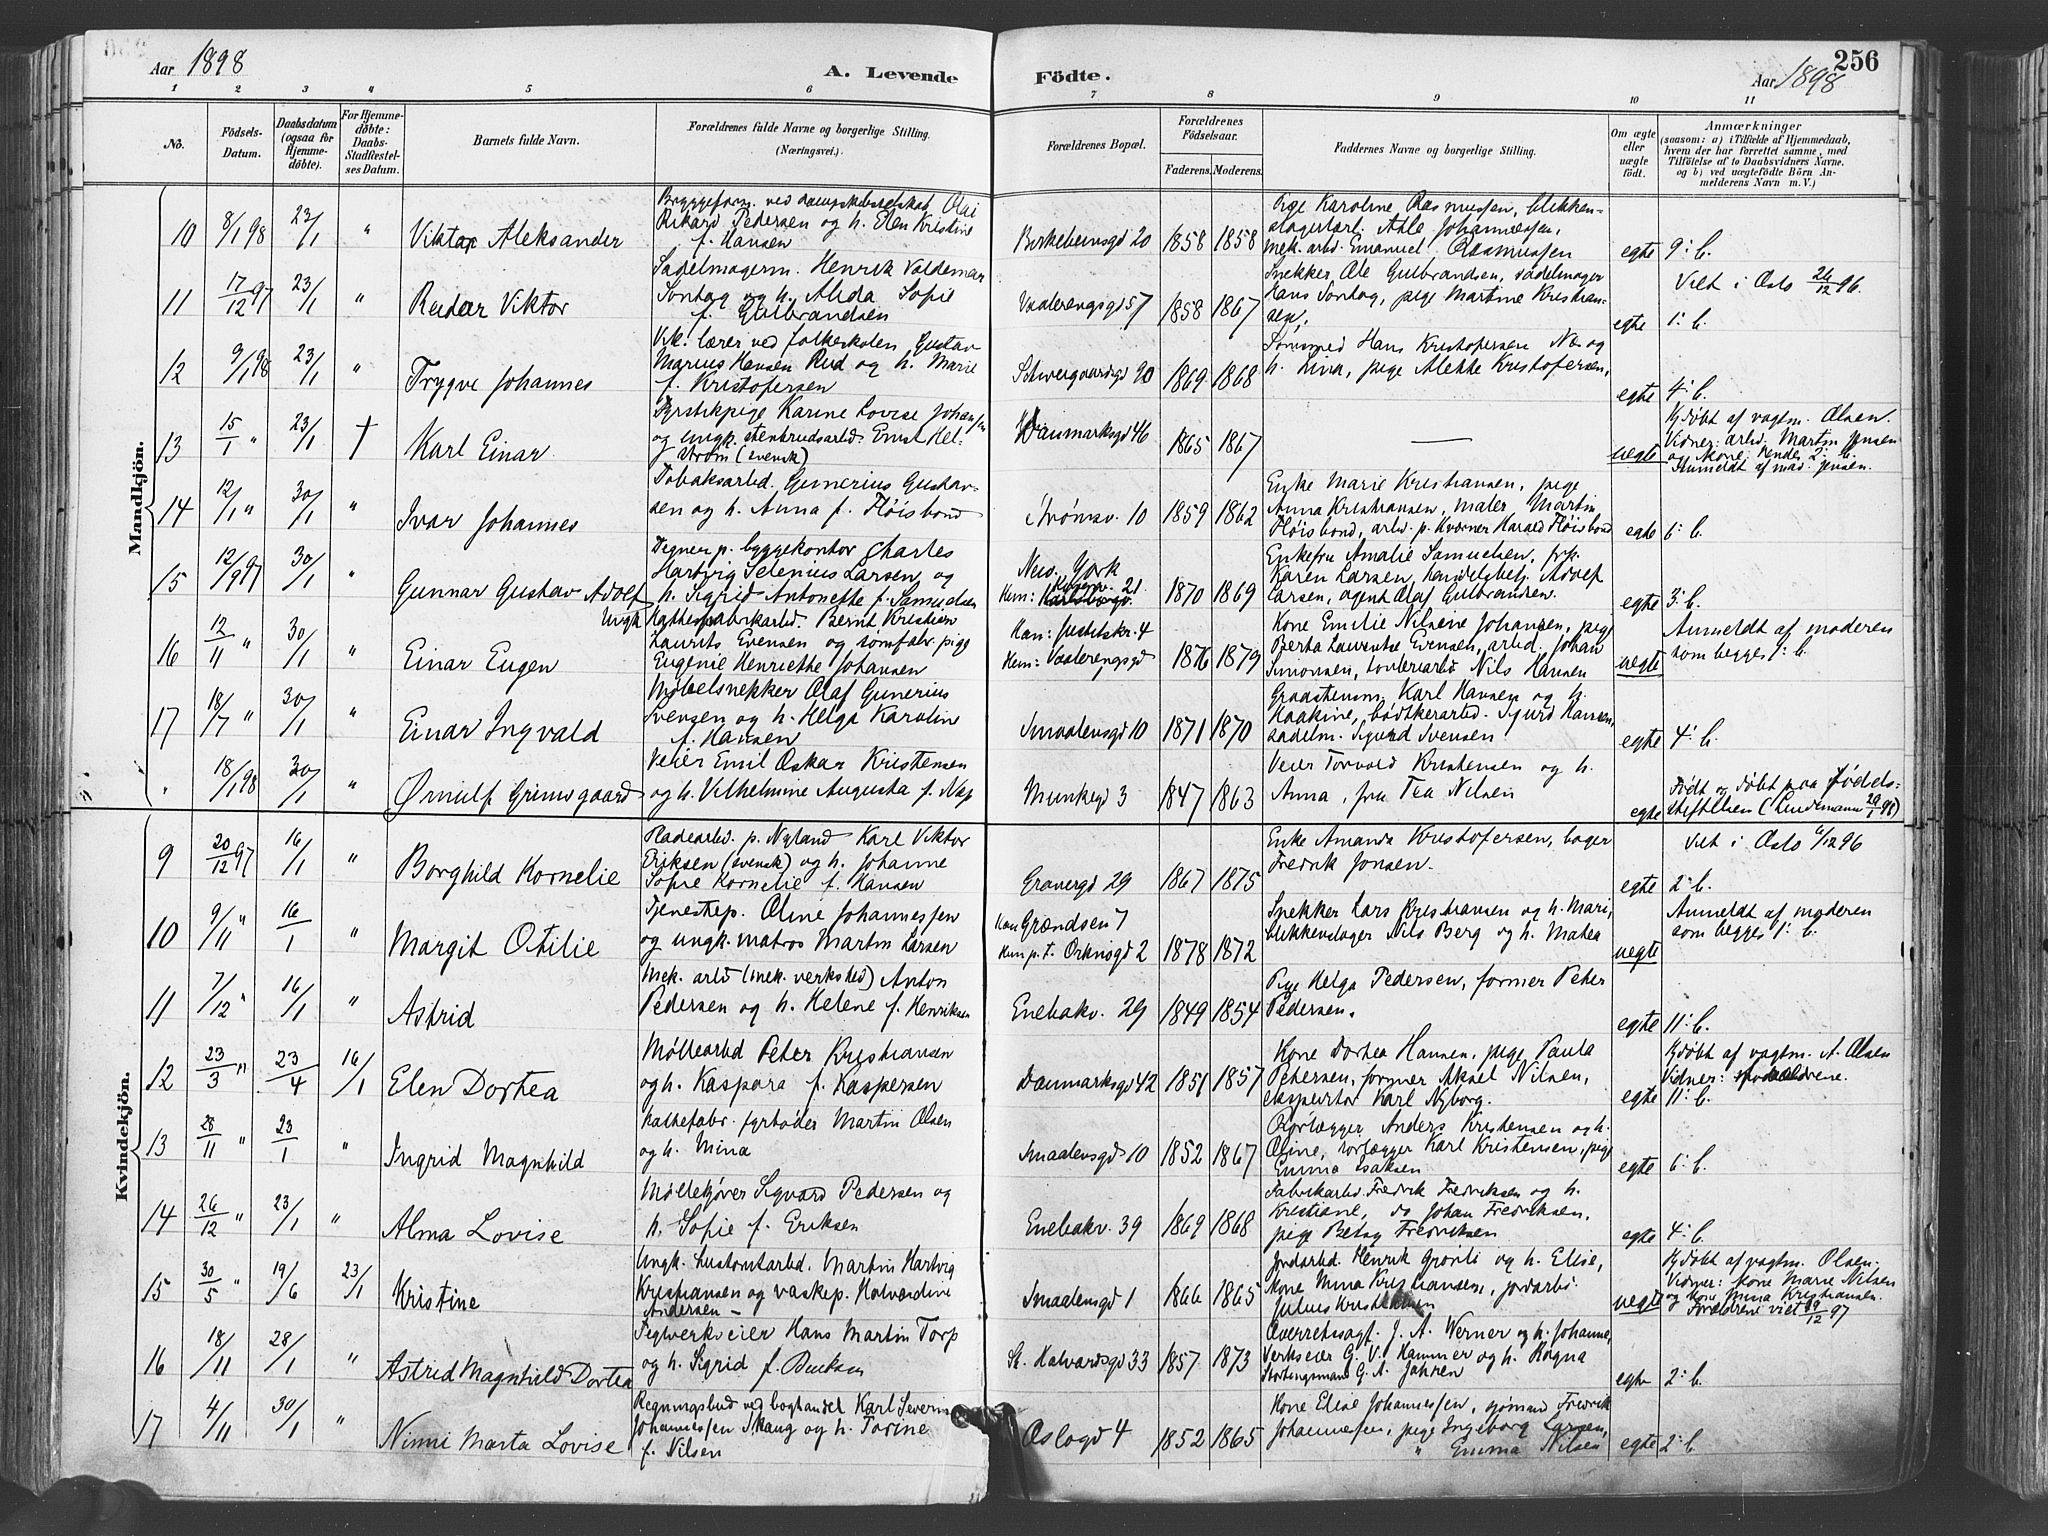 Aar 1898
A. Levende
Födte.
Aar 1898
256
1 2 3 4 5 6 7 8 9 10 11
No.
Födsels-Datum.
Daabsdatum (ogsaa for Hjemmedöbte).
For Hjemmedöbte: Daabs-Stadfestelses Datum.
Barnets fulde Navn.
Forældrenes fulde Navne og borgerlige Stilling. (Næringsvei.)
Forældrenes Bopæl.
Forældrenes Födselsaar.
Faderens. Moderens.
Faddernes Navne og borgerlige Stilling.
Om ægte eller uægte födt.
Anmærkninger
(saasom: a) i Tilfælde af Hjemmedaab, hvem der har forrettet samme, med Tilföielse af to Daabsvidners Navne, og b) ved uægtefödte Börn Anmelderens Navn m. V.)
Mandkjön.
10 8/1 98 23/1 " Viktor Aleksander
Bryggeform. ved dampskibsselskab Olai
Rikard Pedersen og h. Elen Kristine
f. Hansen
Birkebeinsgd 20 1858 1858
Pige Karoline Rasmussen, blikken-
slagerlærl. Atle Johannessen,
mek. arbd. Emanuel Rasmussen
egte 9: b.
11 17/12 97 23/1 " Reidar Viktor
Sadelmagerm. Henrik Valdemar
Sontag og h. Alida Sofie
f. Gulbrandsen
Vaalerengsgd 57 1858 1867
Snekker Ole Gulbrandsen, sadelmager
Hans Sontag, pige Martine Kristian-
sen,
egte Viet i Oslo 26/12 96.
1: b.
12 9/1 98 23/1 " Trygve Johannes
Vik. lærer ved folkeskolen Gustav
Marius Hansen Rud og h. Marie
f. Kristofersen
Schweigaardsgd 90 1869 1868
Sømmed Hans Kristofersen Næs og
h. Lina, pige Alette Kristofersen,
egte 4: b.
13 15/1 " 23/1 † Karl Einar
Fyrstikpige Karine Lovise Johansen
og ungk. stenbrudsarbd. Ernst Hel-
strøm (svensk)
Danmarksgd 46 1865 1867
—
uegte Hjdøbt af vagtm. Olsen.
Vidner: arbd. Martin Jensen
og kone. Hendes 2: b.
Anmeldt af mad. Jensen.
14 12/1 " 30/1 " Ivar Johannes
Tobaksarbd. Gunerius Gustav-
sen og h. Anna f. Fløisbond
Strömsv. 10 1859 1862
Enke Marie Kristiansen, pige
Anna Kristiansen, maler Martin
Fløisbond, arbd. p. Kværner Harald Fløisbond
egte 6: b.
15 12/9 97 30/1 " Gunnar Gustav Adolf
Tegner p. byggekontor Charles
Hartvig Selenius Larsen og
h. Sigrid Antonette f. Samuelsen
New York
Hun: 21 1870 1869
Enkefru Amalie Samuelsen, frk.
Karen Larsen, handelsbetj. Adolf
Larsen, agent Olaf Gulbrandsen.
egte 3: b.
16 12/11 " 30/1 " Einar Eugen
Ungk. Hattefabrikarbd. Bernt Kristian
Laurits Evensen og sømfabr. pige
Eugenie Henriette Johansen
Han: Justitskr. 4
Hun: Vaalerengsgd 1876 1879
Kone Emilie Nilsine Johansen, pige
Berta Laurentse Evensen, arbd. Johan
Simonsen, toularbd Nils Hansen
uegte Anmeldt af moderen
som begges 1: b.
17 18/7 " 30/1 " Einar Ingvald
Møbelsnekker Olaf Gunerius
Svensen og h. Helga Karoline
f. Hansen
Smaalensgd 10 1871 1870
Graastensm. Karl Hansen og h.
Haakine, bødkerarbd. Sigurd Hansen,
sadelm. Sigurd Svensen
egte 4: b.
" 18/1 98 30/1 " Ørnulf Grimsgaard
Veier Emil Oskar Kristensen
og h. Vilhelmine Augusta f. Næs
Munkegd 3 1847 1863
Veier Torvald Kristensen og h.
Anna, fru Tea Nilsen
egte Født og døbt paa Fødsels-
stiftelsen (Lindemann 29/1 98)
Kvindekjön.
9 20/12 97 16/1 " Borghild Kornelie
Pladearbd. p. Nyland Karl Viktor
Eriksen (svensk) og h. Johanne
Sofie Kornelie f. Hansen
Grønergd 29 1867 1875
Enke Amanda Kristofersen, bager
Fredrik Jonsen.
egte Viet i Oslo 6/12 96
2: b.
10 9/11 " 16/1 " Margit Otilie
Tjenestep. Oline Johannessen
og ungk. matros Martin Larsen
Han Grændsen 7
Hun p. t. Orknøgd 2 1878 1872
Snekker Lars Kristiansen og h. Mari,
blikkenslager Nils Berg og h. Matea
uegte Anmeldt af moderen
som begges 1: b.
11 7/12 " 16/1 " Astrid
Mek. arbd (mek. verksted) Anton
Pedersen og h. Helene f. Henriksen
Enebakv. 29 1849 1854
Pige Helga Pedersen, former Peter
Pedersen.
egte 11: b.
12 23/3 " 23/4 16/1 Elen Dortea
Møllearbd Peter Kristiansen
og h. Kaspara f. Kaspersen
Danmarksgd 42 1851 1857
Kone Dortea Hansen, pige Paula
Petersen, former Aksel Nilsen,
ekspeditør Karl Nyborg.
egte Hjdøbt af vagtm. A. Olsen
Vidner: forældrene.
11: b.
13 28/11 " 23/1 " Ingrid Magnhild
Hattefabr. fyrbøder Martin Olsen
og h. Mina
Smaalensgd 10 1852 1867
Rørlægger Anders Kristensen og h.
Oline, rørlægger Karl Kristensen, pige
Emma Isaksen
egte 6: b.
14 26/12 " 23/1 " Alma Lovise
Møllekjører Sigvard Pedersen og
h. Sofie f. Eriksen
Enebakv. 39 1869 1868
Fabrikarbd. Fredrik Fredriksen og h.
Kristiane, do Johan Fredriksen,
pige Betsy Fredriksen
egte 4: b.
15 30/5 " 19/6 23/1 Kristine
Ungk. tustomtarbd. Martin Hartvig
Kristiansen og vaskep. Halvardine
Andersen –
Smaalensgd 1 1866 1865
Jordarbd. Henrik Grønli og h. Elise,
kone Mina Kristiansen, jordarbd
Julius Kristiansen
uegte Hjdøbt af vagtm. Olsen.
Vidner: kone Marie Nilsen
og kone Mina Kristiansen.
Forældrene viet 19/12 97
16 18/11 28/1 " Astrid Magnhild Dortea
Teglverkveier Hans Martin Torp
og h. Sigrid f. Bentsen
St. Halvardsgd 33 1857 1873
Overretssagf. J. A. Werner og h. Johanne,
Verkseier G. V. Hammer og h. Ragna
Stortingsmand G. A. Jahren
egte 2: b.
17 4/11 30/1 " Ninni Marta Lovise
Regningsbud ved boghandel Karl Severin
Johannessen Skaug og h. Torine
f. Nilsen
Oslogd 4 1852 1865
Kone Elise Johannessen, sjømand Fredrik
Johannessen, pige Ingeborg Larsen,
" Emma Nilsen
egte 2: b.